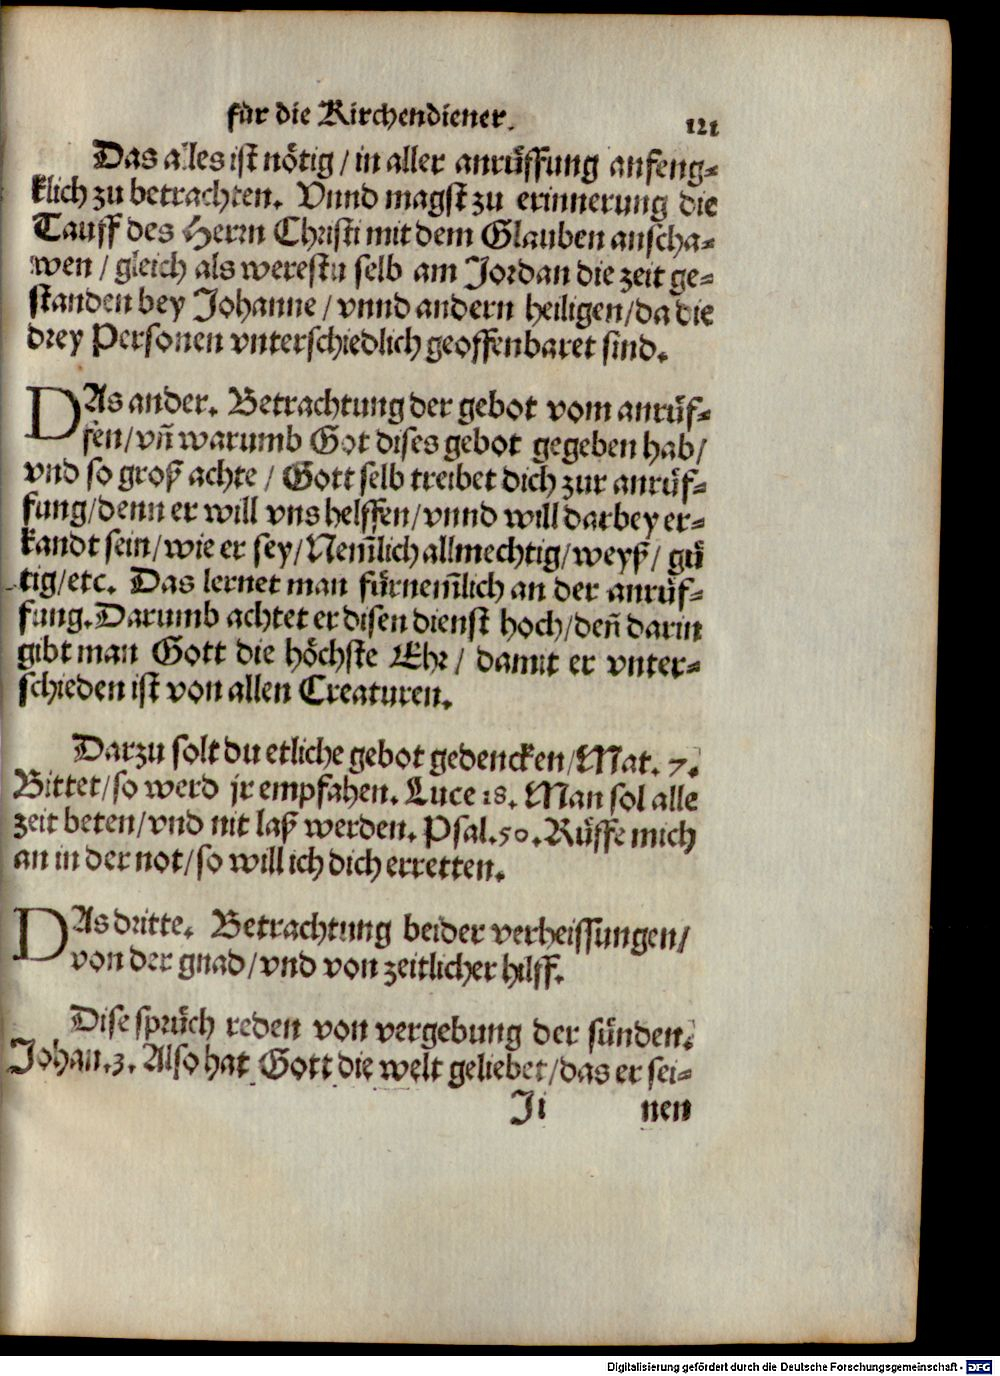 für die Kirchendiener.
121
Das alles ist nötig / in aller anrüffung anfeng-
klich zu betrachten. Vnnd magst zu erinnerung die
Tauff des Herrn Christi mit dem Glauben anscha-
wen / gleich als werestu selb am Jordan die zeit ge-
standen bey Johanne / vnnd andern heiligen/da die
drey Personen vnterschiedlich geoffenbaret sind.
DAs ander. Betrachtung der gebot vom anrüf-
fen/vñ warumb Got dises gebot gegeben hab/
vnd so groß achte / Gott selb treibet dich zur anrüf-
fung/denn er will vns helffen/vnnd will darbey er-
kandt sein/wie er sey/Nem̃lich allmechtig/weyß/ gü
tig/etc. Das lernet man fürnem̃lich an der anrüf-
fung.Darumb achtet er disen dienst hoch/deñ darin
gibt man Gott die höchste Ehr/ damit er vnter-
schieden ist von allen Creaturen.
Darzu solt du etliche gebot gedencken/Mat. 7.
Bittet/so werd jr empfahen. Luce 18. Man sol alle
zeit beten/vnd nit laß werden. Psal.50.Rüffe mich
an in der not/so will ich dich erretten.
DAs dritte. Betrachtung beider verheissungen/
von der gnad/vnd von zeitlicher hilff.
Dise sprüch reden von vergebung der sünden.
Johan.3. Also hat Gott die welt geliebet/das er sei-
Ji nen
Digitalisierung gefördert durch die Deutsche Forschungsgemeinschaft - DFG